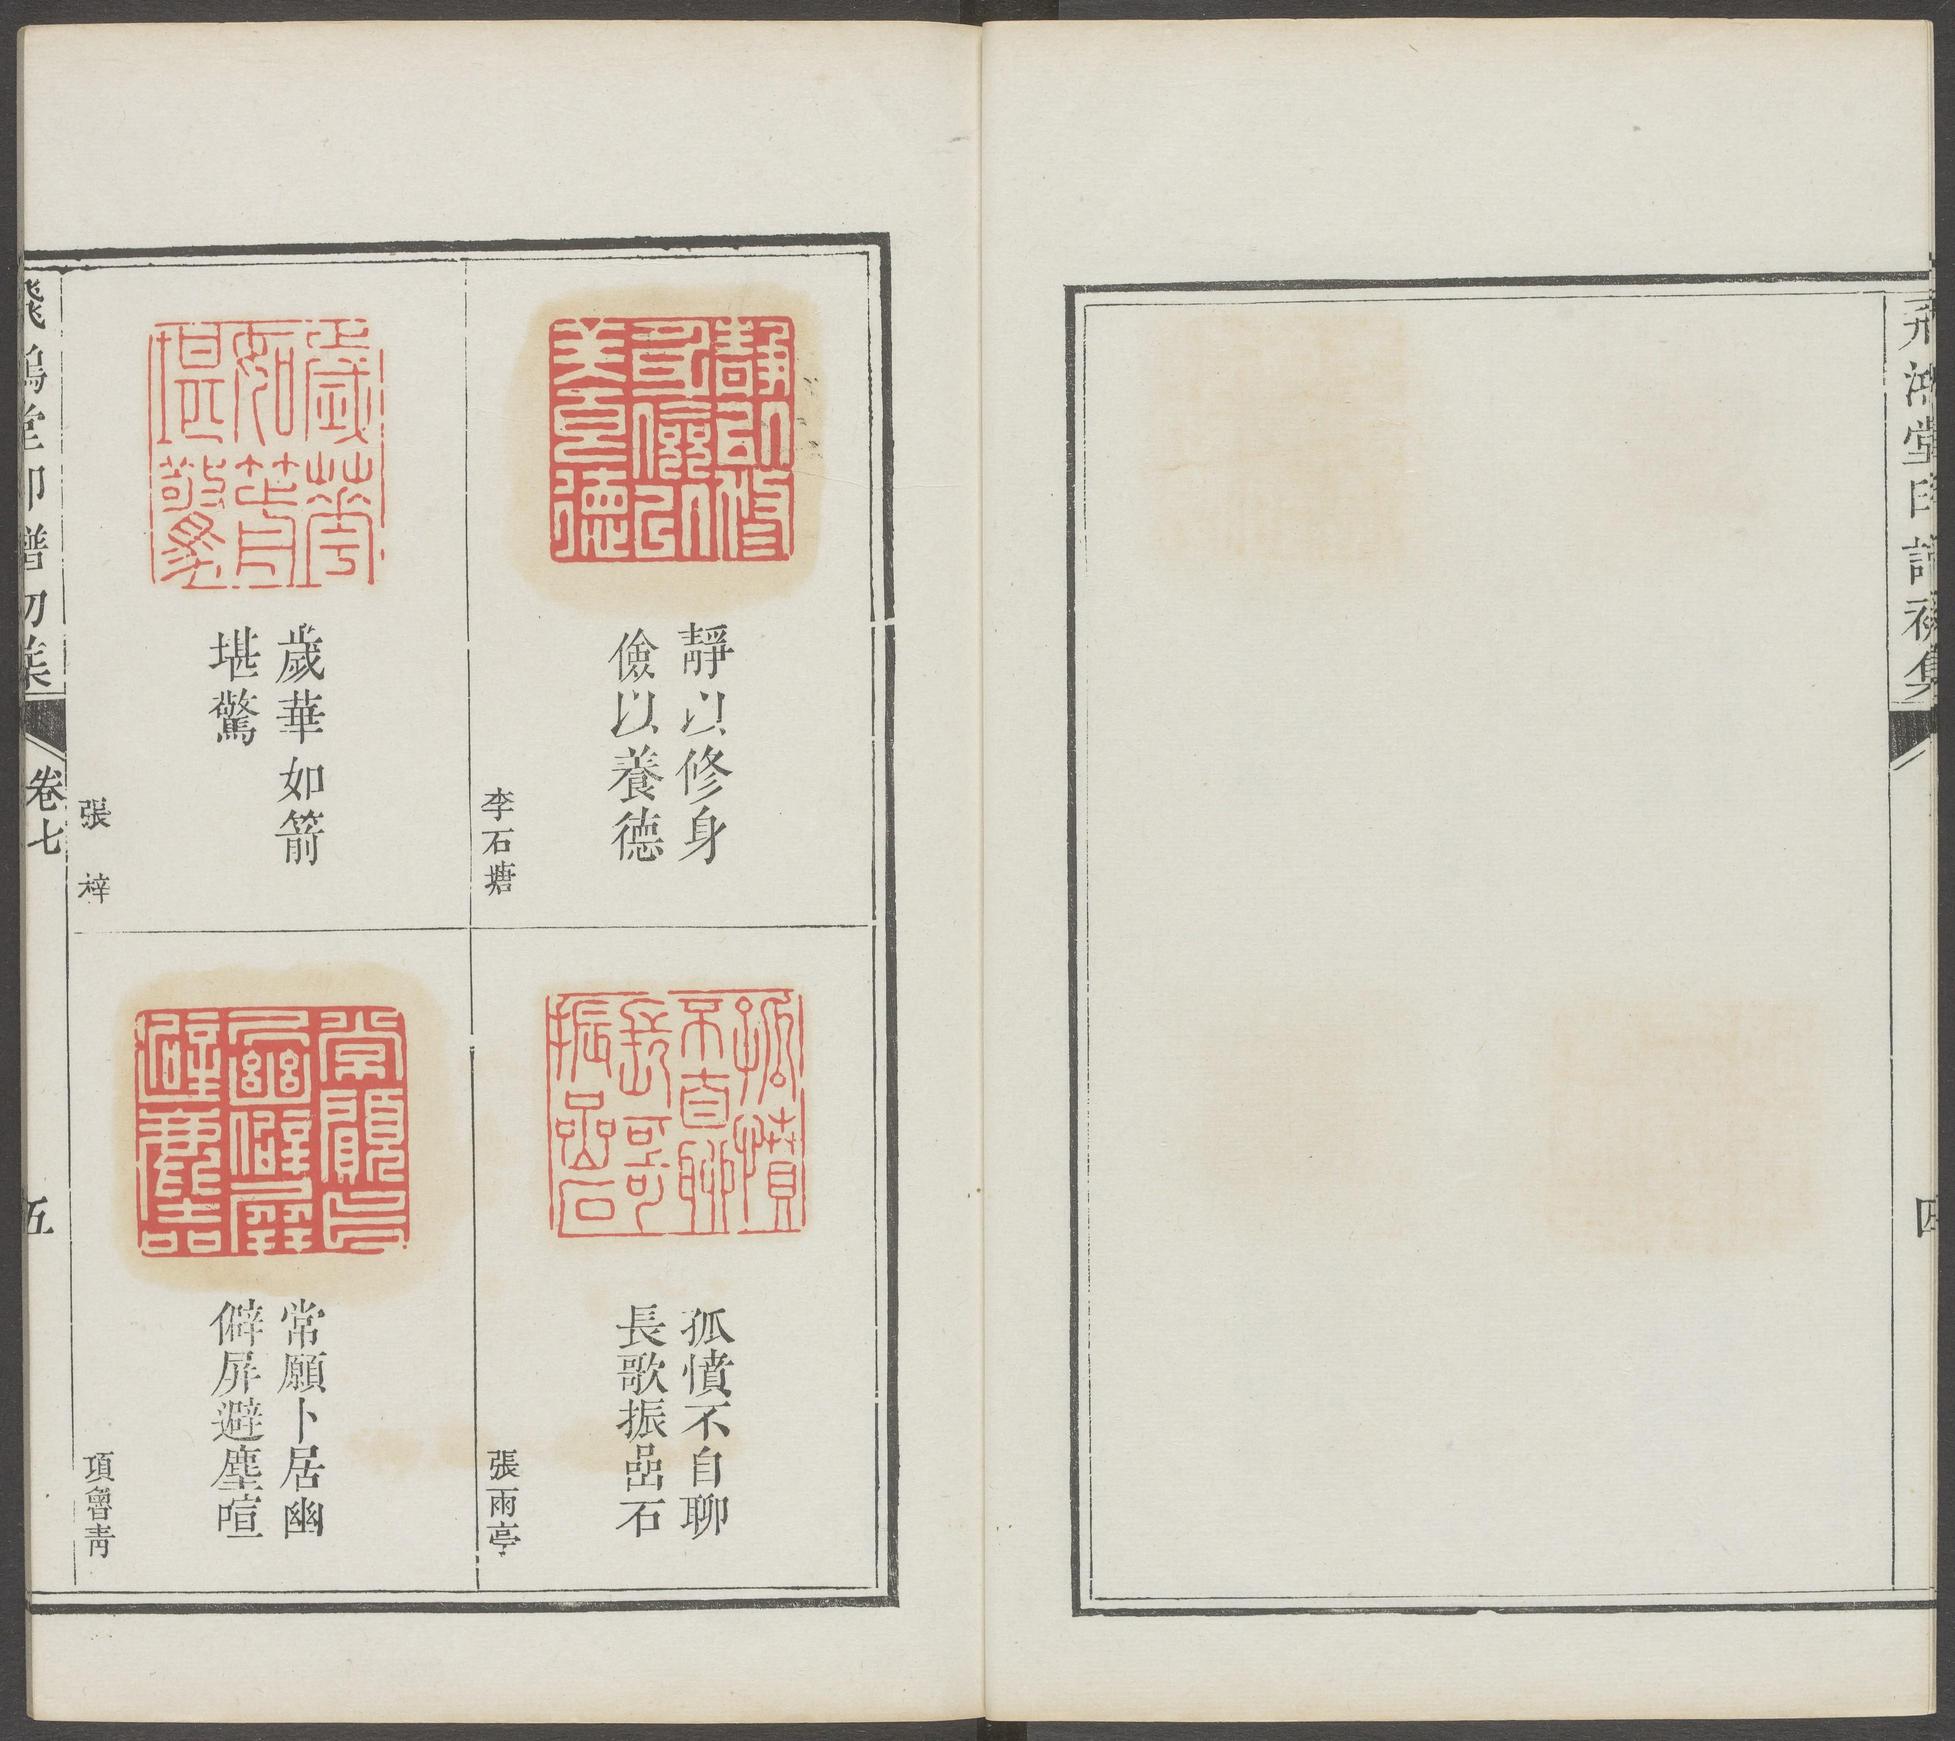 飛鴻堂印譜初集
四
靜以修身
儉以養德
李石塘
孤憤不自聊
長歌振嵒石
張雨亭
歲華如箭
堪驚
張梓
常願卜居幽
僻屏避塵喧
項魯青
飛鴻堂印譜初集
卷七
五